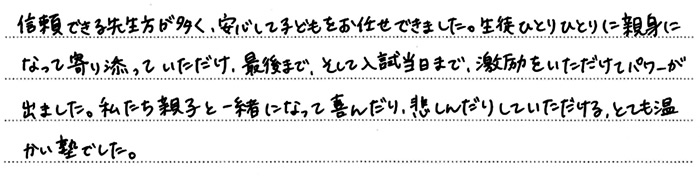 信頼できる先生方が多く、安心して子どもをお任せできました。生徒ひとりひとりに親身に
なって寄り添っていただけ、最後まで、そして入試当日まで、激励をいただけてパワーが
出ました。私たち親子と一緒になって喜んだり、悲しんだりしていただける、とても温
かい塾でした。